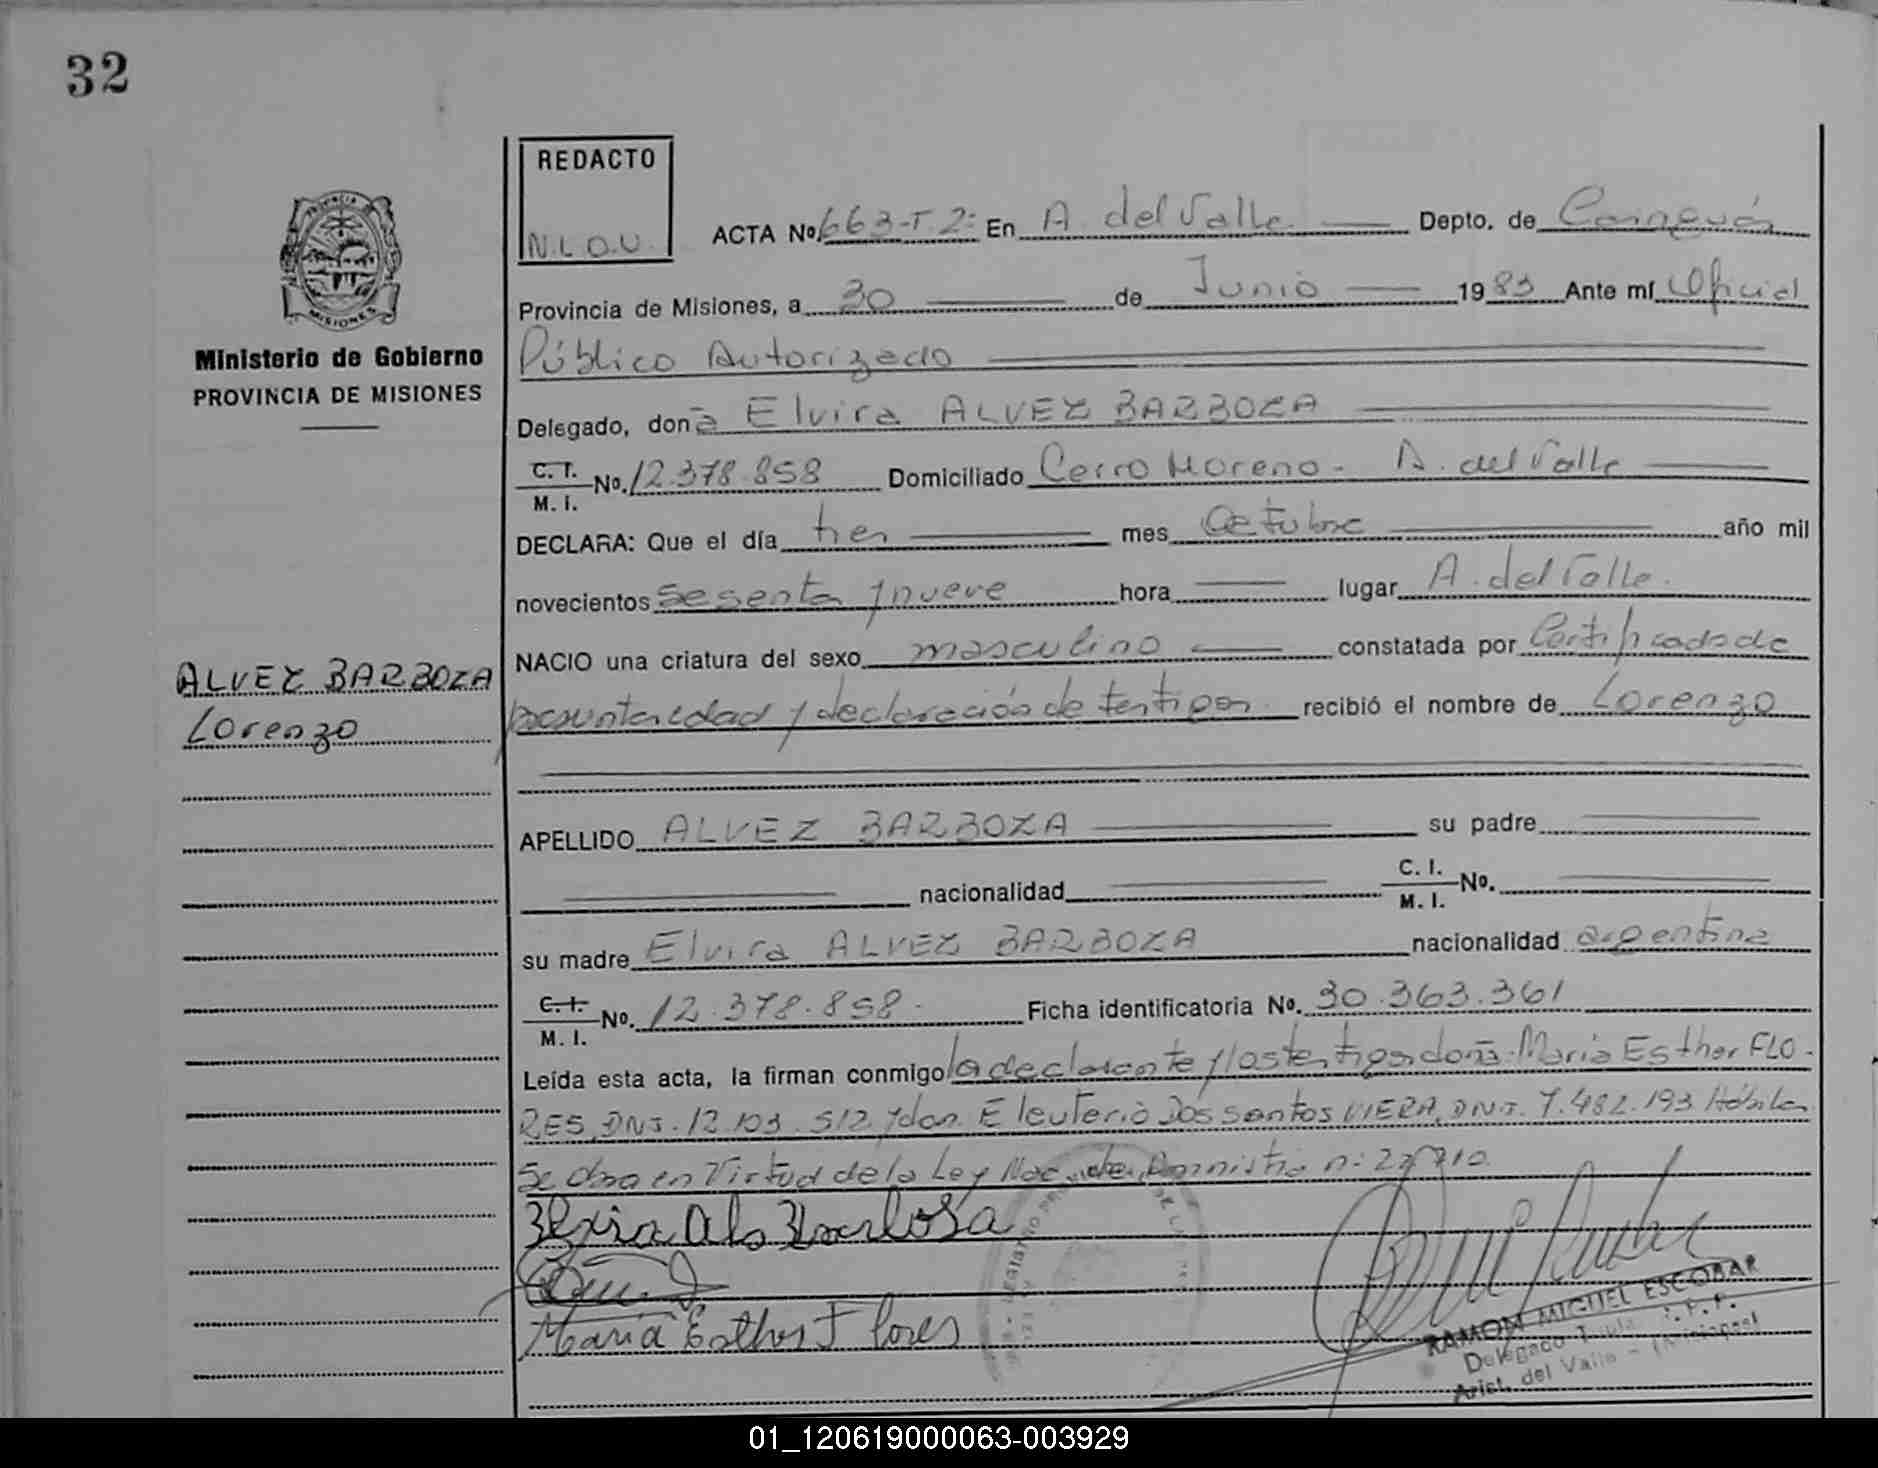 32
REDACTO
N.L.O.U.
PROVINCIA DE
MISIONES
Ministerio de Gobierno
PROVINCIA DE MISIONES
ALVEZ BARBOZA
Lorenzo
ACTA No. 663-T.2: En A. del Valle Depto. de Cainguás
Provincia de Misiones, a 30 de Junio 1983 Ante mí Oficial
Público Autorizado
Delegado, don ã Elvira ALVEZ BARBOZA
C. I.
M. I. No. 12.378.858 Domiciliado Cerro Moreno - A. del Valle
DECLARA: Que el día tres mes Octubre año mil
novecientos sesenta y nueve hora lugar A. del Valle.
NACIO una criatura del sexo masculino constatada por Certificado de
presunta edad y declaración de testigos. recibió el nombre de Lorenzo
APELLIDO ALVEZ BARBOZA su padre
nacionalidad C. I.
M. I. No.
su madre Elvira ALVEZ BARBOZA nacionalidad argentina
C. I.
M. I. No. 12.378.858. Ficha identificatoria No. 30.363.361
Leída esta acta, la firman conmigo la declarante y los testigos doña: Maria Esther FLO-
RES, DNI. 12.103.512 y don. Eleuterio Dos santos VIERA, DNI. 7.482.193 Hábiles
Se labra en Virtud de la Ley Nac. de Amnistia n:
Maria Esther Flores
RAMON MIGUEL ESCOBAR
Delegado
Arist. del Valle - (Misiones)
01_120619000063-003929